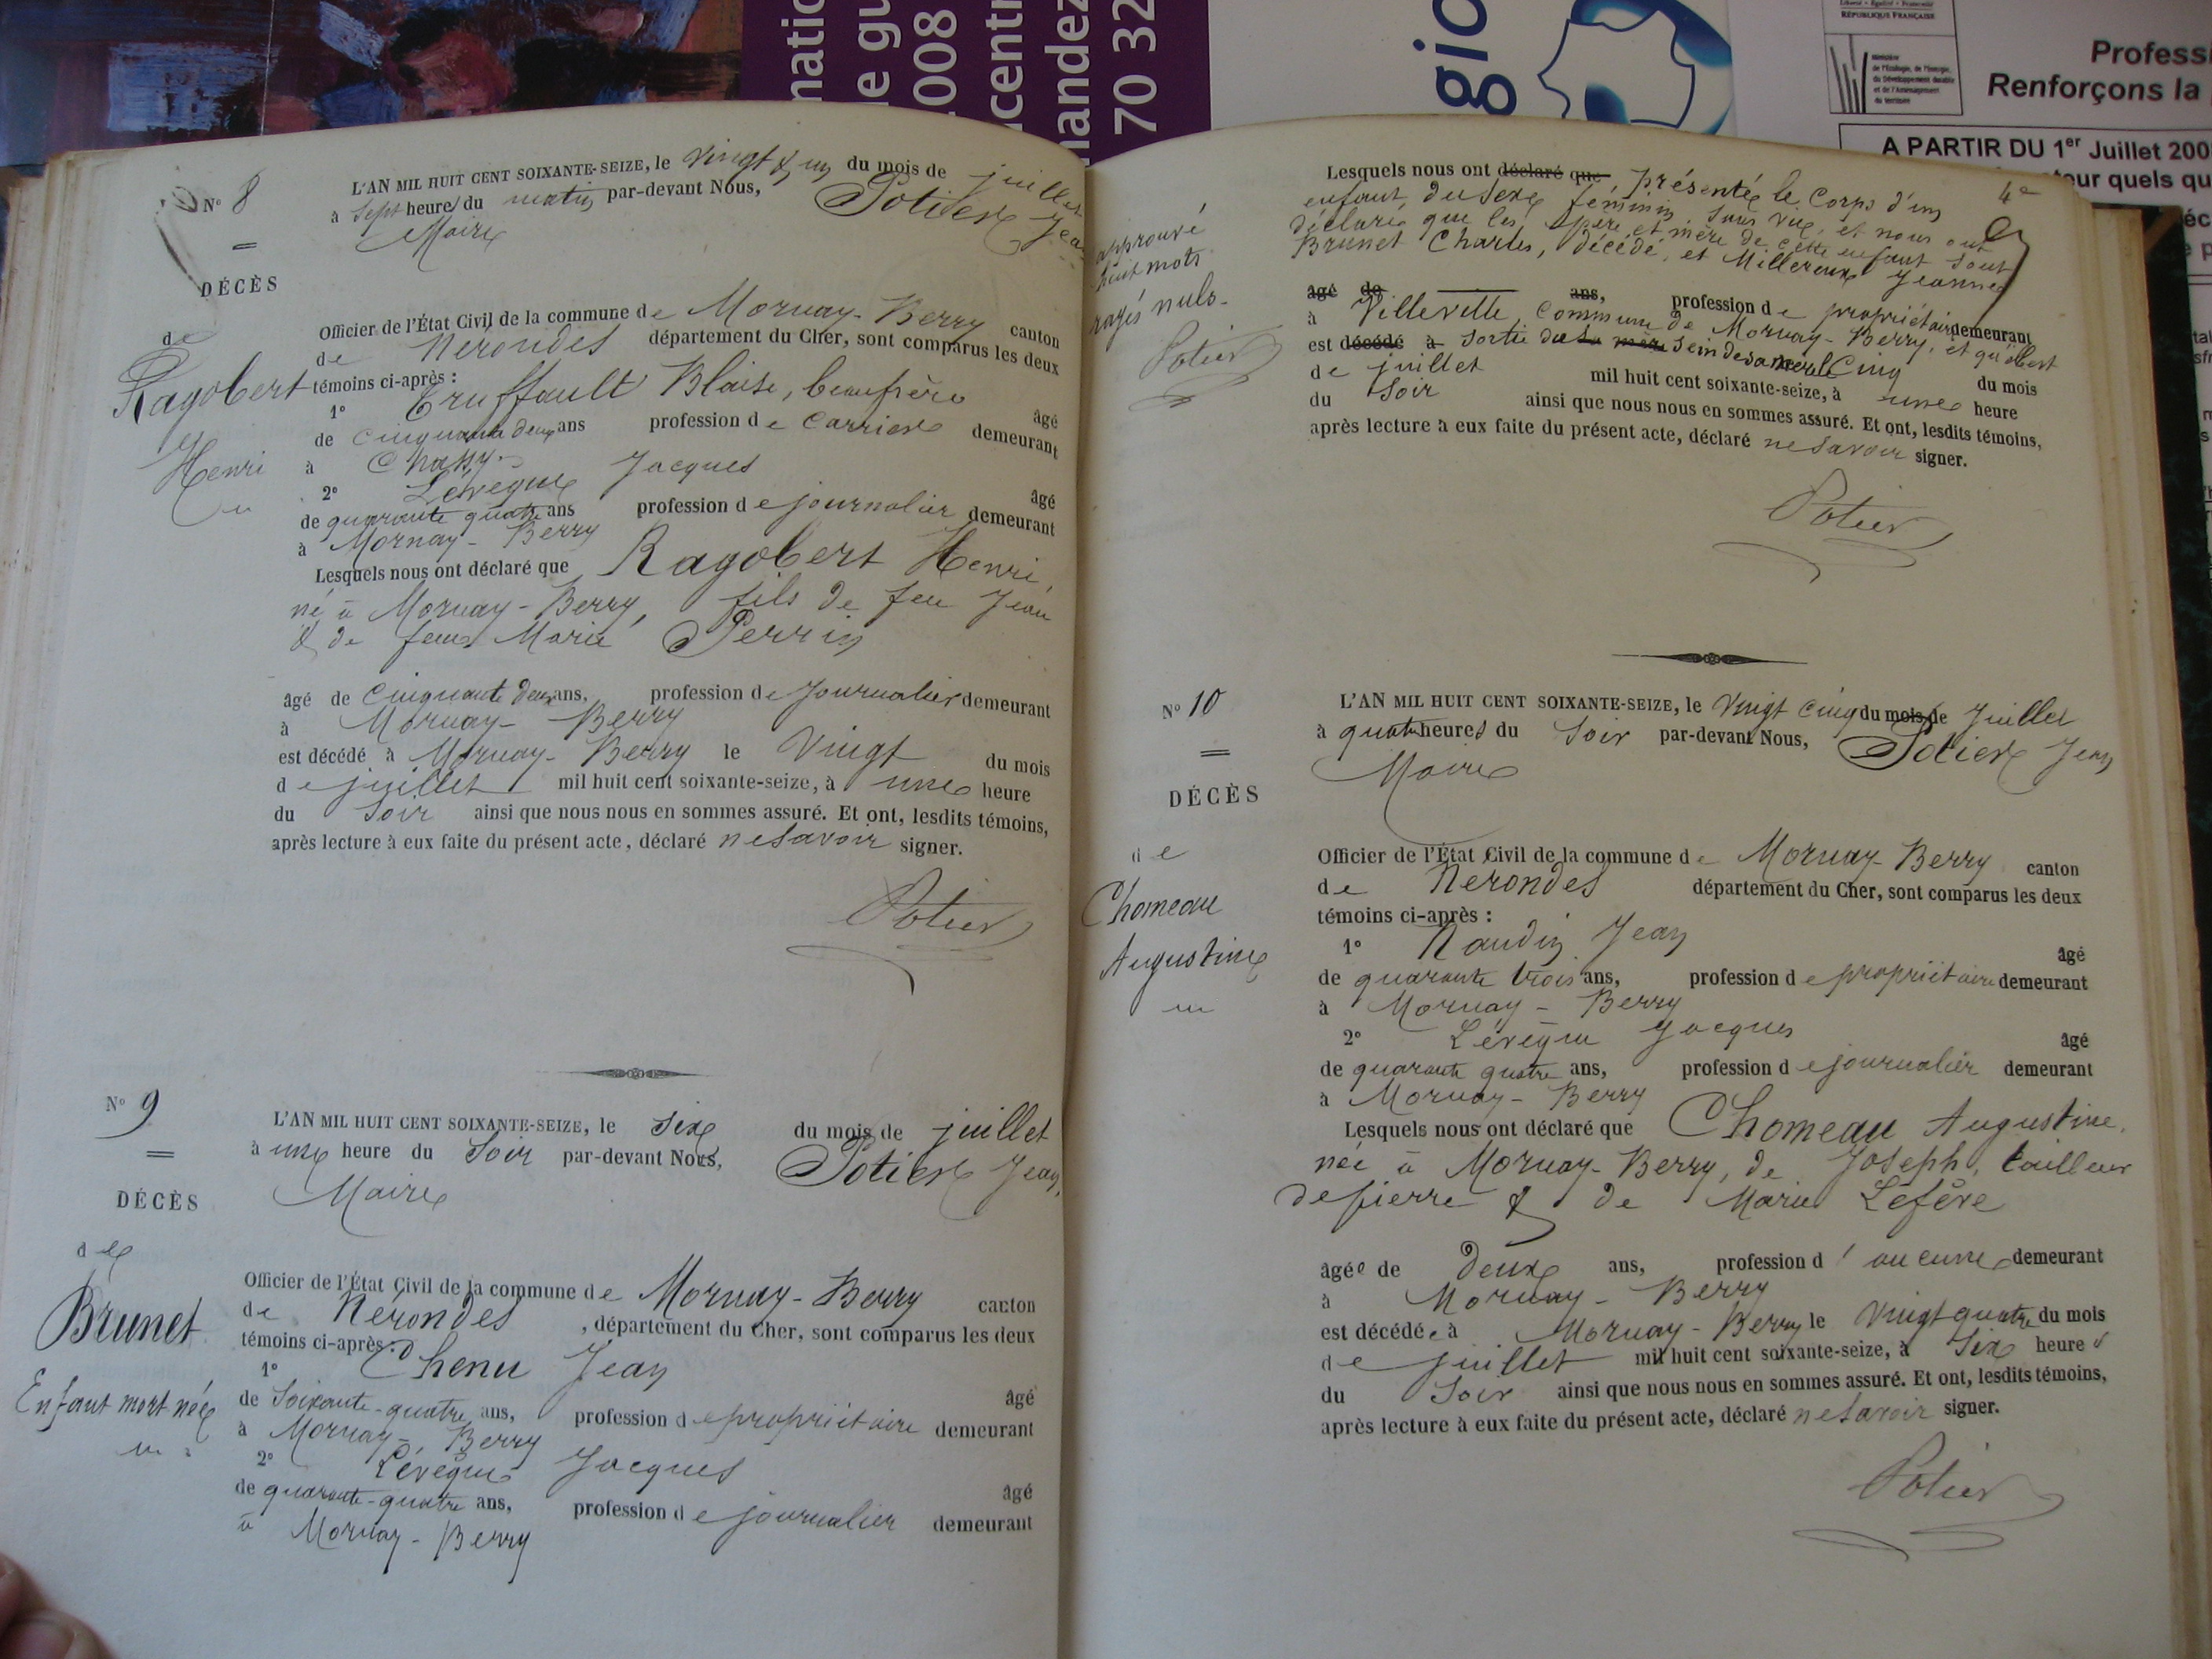 natio
e gu
008
centr
mandez
70 32
gio
Liberté • Égalité • Fraternité
RÉPUBLIQUE FRANÇAISE
de l'Écologie, de l'Énergie,
du Développement durable
et de l'Aménagement
du territoire
Profess
Renforçons la
A PARTIR DU 1er Juillet 200
teur quels qu
N° 8
DÉCÈS
de
Ragobert
Henri
L'AN MIL HUIT CENT SOIXANTE-SEIZE, le vingt & un du mois de juillet
à sept heures du matin par-devant Nous, Potier Jean
Maire
Officier de l'État Civil de la commune de Mornay-Berry canton
de Nerondes département du Cher, sont comparus les deux
témoins ci-après :
1° Truffault Blaise, beaufrère âgé
de cinquante deux ans profession de carrier demeurant
à Chassy
2° Leveque Jacques âgé
de quarante quatre ans profession de journalier demeurant
à Mornay-Berry
Lesquels nous ont déclaré que Ragobert Henri,
né à Mornay-Berry, fils de feu Jean
& de feue Marie Perrin
âgé de cinquante deux ans, profession de journalier demeurant
à Mornay-Berry
est décédé à Mornay-Berry le vingt du mois
de juillet mil huit cent soixante-seize, à une heure
du soir ainsi que nous nous en sommes assuré. Et ont, lesdits témoins,
après lecture à eux faite du présent acte, déclaré ne savoir signer.
Potier
N° 9
DÉCÈS
de
Brunet
Enfant mort née
L'AN MIL HUIT CENT SOIXANTE-SEIZE, le six du mois de juillet
à une heure du soir par-devant Nous, Potier Jean,
Maire
Officier de l'État Civil de la commune de Mornay-Berry canton
de Nérondes, département du Cher, sont comparus les deux
témoins ci-après :
1° Chenu Jean âgé
de soixante-quatre ans, profession de propriétaire demeurant
à Mornay-Berry
2° Lévêque Jacques âgé
de quarante-quatre ans, profession de journalier demeurant
à Mornay-Berry
4e
Lesquels nous ont déclaré que présenté le Corps d'un
enfant du sexe féminin, sans vie, et nous ont
déclaré que les père et mère de cette enfant sont
Brunet Charles, décédé, et Millereux Jeanne
âgé de ans, profession de propriétaire demeurant
à Villeville, Commune de Mornay-Berry, et qu'elle est
est décédé à sortie du sa mère sein de sa mère le Cinq du mois
de juillet mil huit cent soixante-seize, à une heure
du soir ainsi que nous nous en sommes assuré. Et ont, lesdits témoins,
après lecture à eux faite du présent acte, déclaré ne savoir signer.
Potier
approuvé
huit mots
rayés nuls.
Potier
N° 10
DÉCÈS
de
Chomeau
Augustine
L'AN MIL HUIT CENT SOIXANTE-SEIZE, le vingt cinq du mois de juillet
à quatre heures du soir par-devant Nous, Potier Jean
Maire
Officier de l'État Civil de la commune de Mornay-Berry canton
de Nerondes département du Cher, sont comparus les deux
témoins ci-après :
1° Naudin Jean âgé
de quarante trois ans, profession de propriétaire demeurant
à Mornay-Berry
2° Lévêque Jacques âgé
de quarante quatre ans, profession de journalier demeurant
à Mornay-Berry
Lesquels nous ont déclaré que Chomeau Augustine,
née à Mornay-Berry, de Joseph, tailleur
de pierre & de Marie Lefêve
âgée de deux ans, profession d'aucune demeurant
à Mornay-Berry
est décédée à Mornay-Berry le vingt quatre du mois
de juillet mil huit cent soixante-seize, à six heures
du soir ainsi que nous nous en sommes assuré. Et ont, lesdits témoins,
après lecture à eux faite du présent acte, déclaré ne savoir signer.
Potier